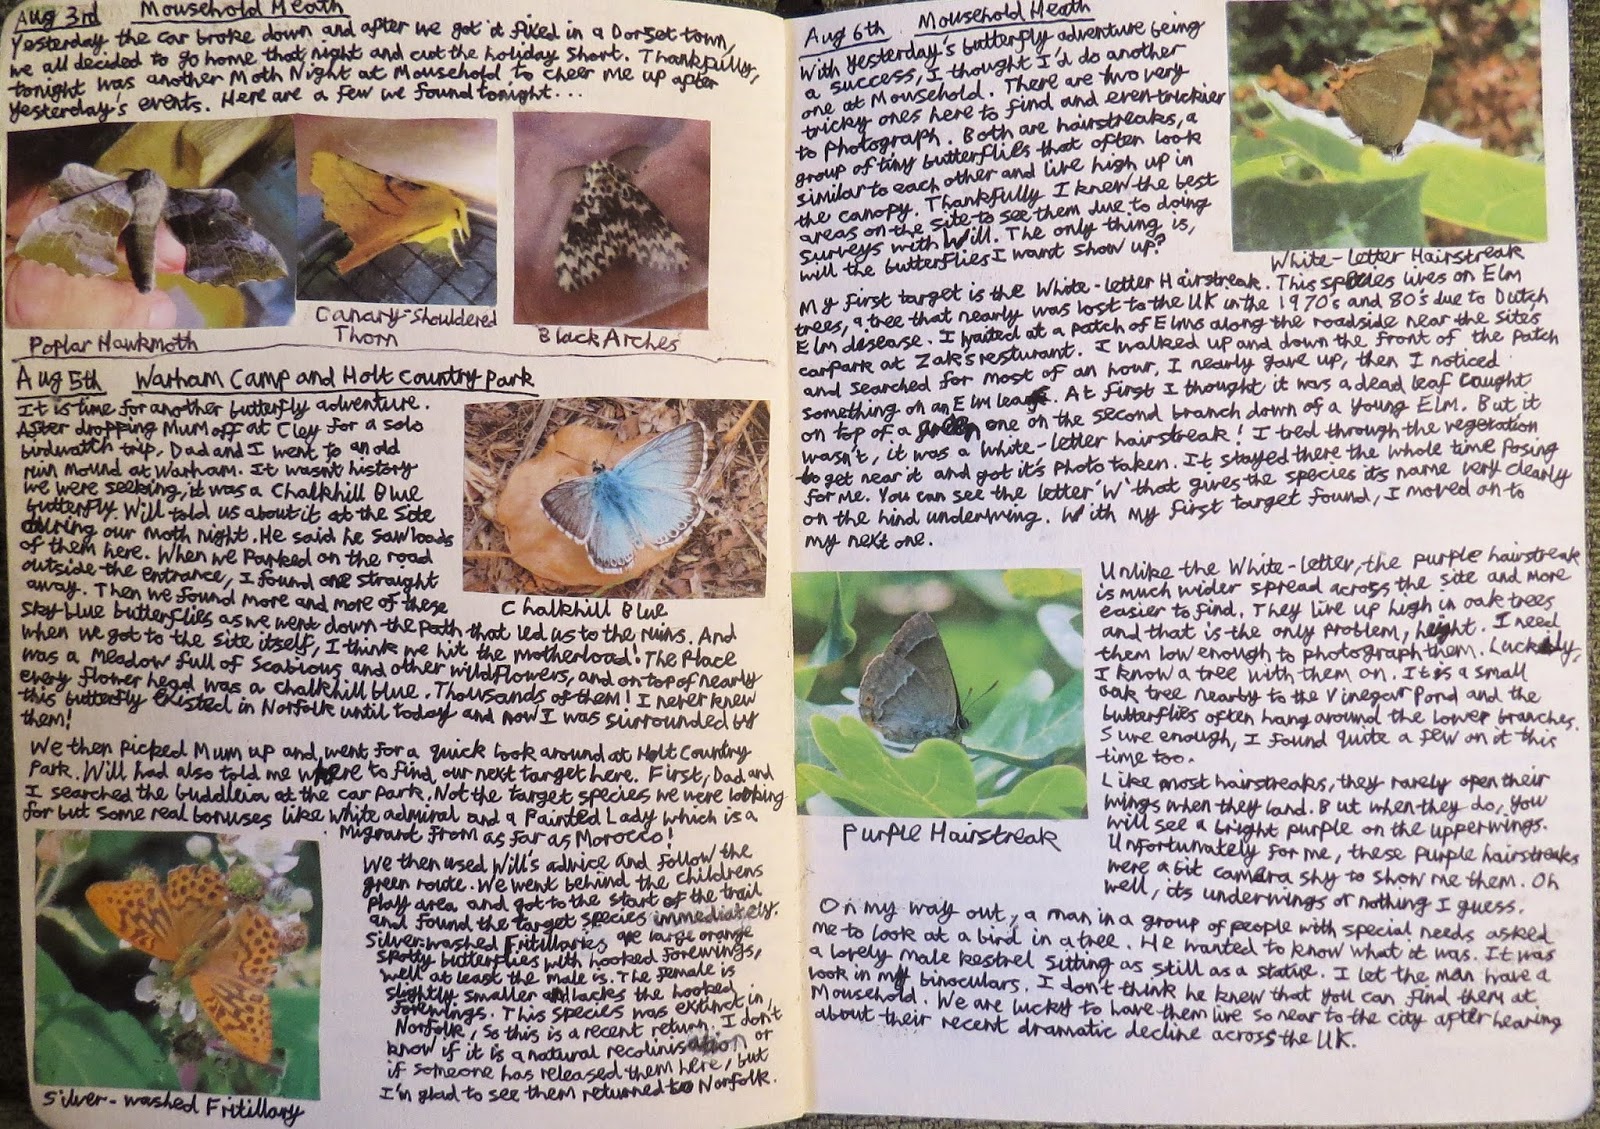 Aug 3rd Mousehold Heath
Yesterday the car broke down and after we got it fixed in a Dorset town,
we all decided to go home that night and cut the holiday short. Thankfully,
tonight was another Moth Night at Mousehold to cheer me up after
yesterday's events. Here are a few we found tonight...
Poplar Hawkmoth
Canary-Shouldered
Thorn
Black Arches
Aug 5th Warham Camp and Holt Country Park
It is time for another butterfly adventure.
After dropping Mum off at Cley for a solo
birdwatch trip, Dad and I went to an old
ruin mound at Warham. It wasn't history
we were seeking, it was a Chalkhill Blue
butterfly. Will told us about it at the site
during our moth night. He said he saw loads
of them here. When we parked on the road
outside the entrance, I found one straight
away. Then we found more and more of these
sky blue butterflies as we went down the path that led us to the ruins. And
when we got to the site itself, I think we hit the motherload! The place
was a meadow full of scabious and other wildflowers, and on top of nearly
every flower head was a chalkhill blue. Thousands of them! I never knew
this butterfly existed in Norfolk until today and now I was surrounded by
them!
Chalkhill Blue
We then picked Mum up and went for a quick look around at Holt Country
Park. Will had also told me where to find, our next target here. First, Dad and
I searched the buddleia at the car park. Not the target species we were looking
for but some real bonuses like white admiral and a Painted Lady which is a
migrant from as far as Morocco!
We then used Will's advice and follow the
green route. We went behind the childrens
play area and got to the start of the trail
and found the target species immediately.
Silver-washed Fritillaries are large orange
spotty butterflies with hooked forewings,
well at least the male is. The female is
slightly smaller and lacks the hooked
forewings. This species was extinct in
Norfolk, so this is a recent return. I don't
know if it is a natural recolinisation or
if someone has released them here, but
I'm glad to see them returned to Norfolk.
Silver-washed Fritillary
Aug 6th Mousehold Heath
With yesterday's butterfly adventure being
a success, I thought I'd do another
one at Mousehold. There are two very
tricky ones here to find and even trickier
to photograph. Both are hairstreaks, a
group of tiny butterflies that often look
similar to each other and live high up in
the canopy. Thankfully I knew the best
areas on the site to see them due to doing
surveys with Will. The only thing is,
will the butterflies I want show up?
White-letter Hairstreak
My first target is the White-letter Hairstreak. This species lives on Elm
trees, a tree that nearly was lost to the UK in the 1970's and 80's due to Dutch
Elm disease. I waited at a patch of Elms along the roadside near the sites
carpark at Zaks resturant. I walked up and down the front of the patch
and searched for most of an hour, I nearly gave up, then I noticed
something on an Elm leaf. At first I thought it was a dead leaf caught
on top of a green one on the second branch down of a young Elm. But it
wasn't, it was a White-letter hairstreak! I tred through the vegetation
to get near it and got it's photo taken. It stayed there the whole time posing
for me. You can see the letter 'W' that gives the species its name very clearly
on the hind underwing. With my first target found, I moved on to
my next one.
Unlike the White-letter, the purple hairstreak
is much wider spread across the site and more
easier to find. They live up high in oak trees
and that is the only problem, height. I need
them low enough to photograph them. Luckily,
I know a tree with them on. It is a small
oak tree nearby to the Vinegar Pond and the
butterflies often hang around the lower branches.
Sure enough, I found quite a few on it this
time too.
Like most hairstreaks, they rarely open their
wings when they land. But when they do, you
will see a bright purple on the upperwings.
Unfortunately for me, these purple hairstreaks
were a bit camera shy to show me them. Oh
well, its underwings or nothing I guess.
Purple Hairstreak
On my way out, a man in a group of people with special needs asked
me to look at a bird in a tree. He wanted to know what it was. It was
a lovely male kestrel sitting as still as a statue. I let the man have a
look in my binoculars. I don't think he knew that you can find them at
Mousehold. We are lucky to have them live so near to the city after hearing
about their recent dramatic decline across the UK.